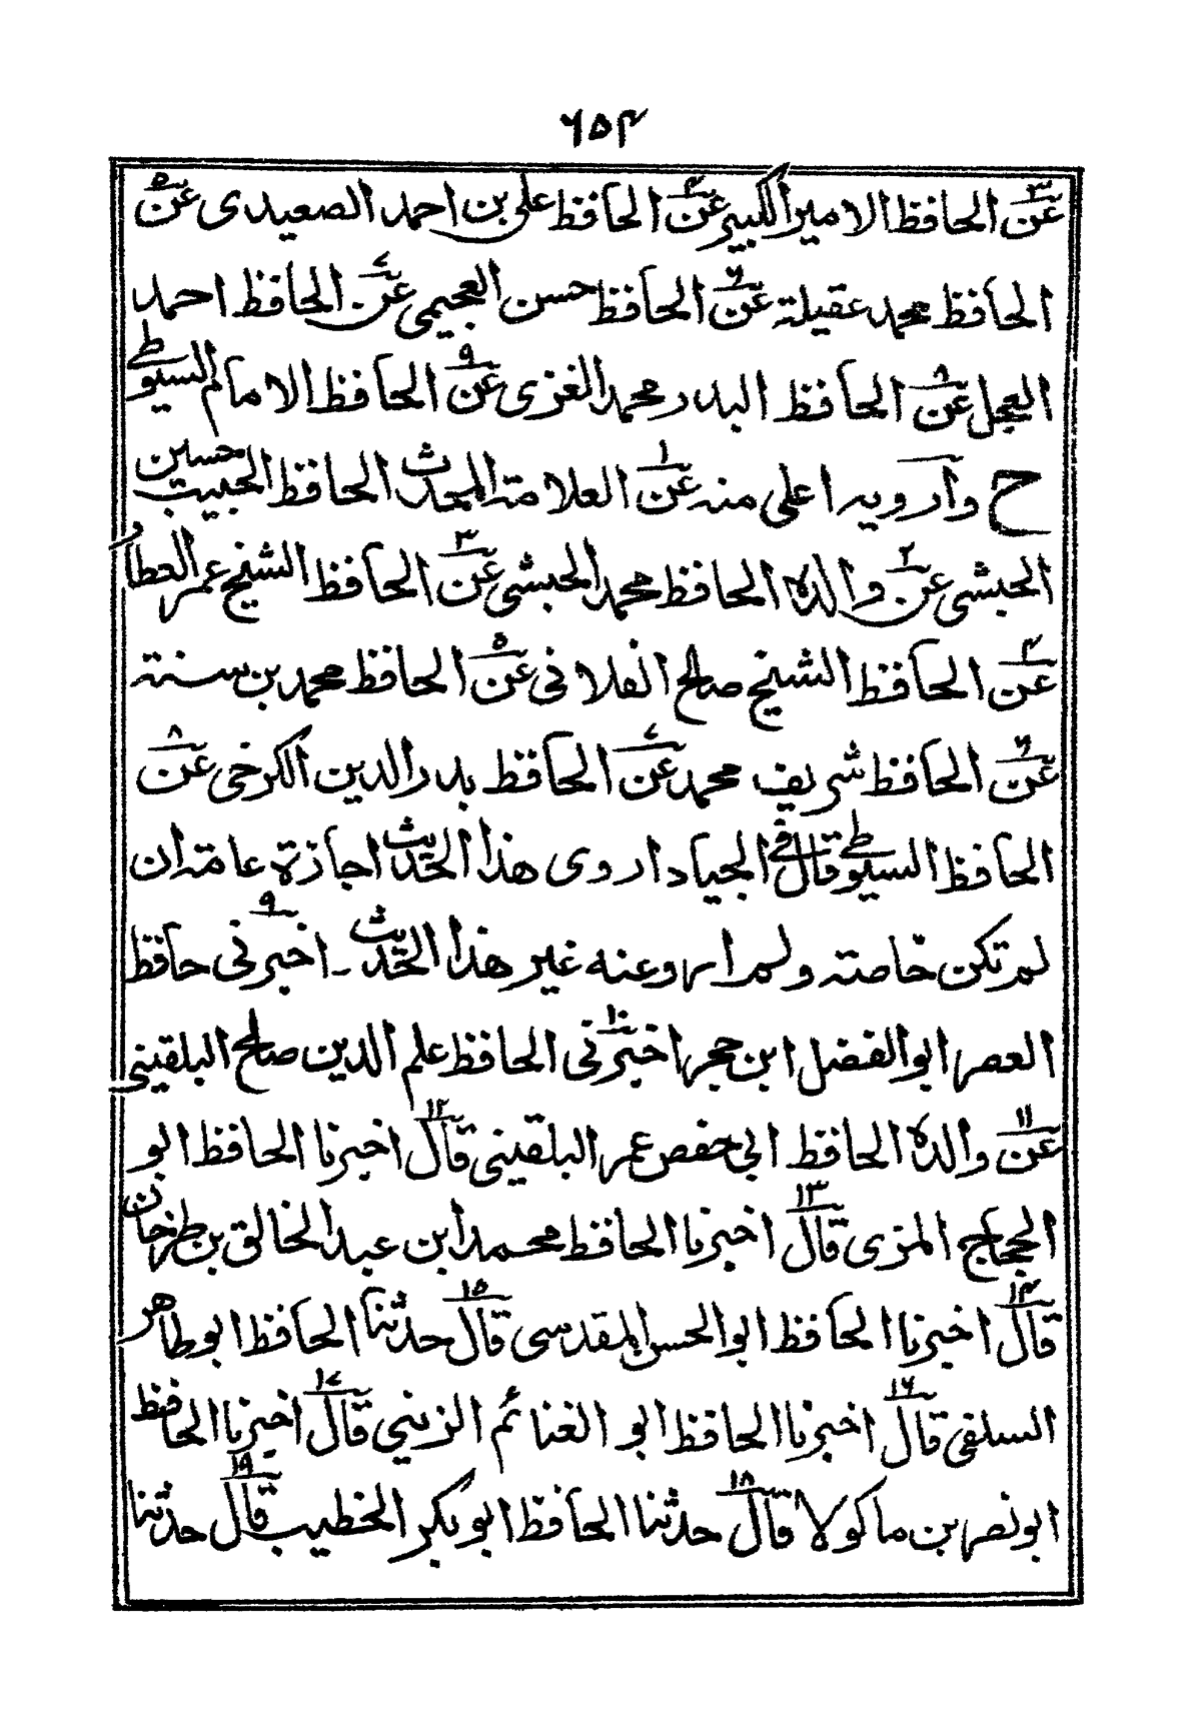 ۶۵۴
عن۳ الحافظ الامير الكبير عن۴ الحافظ على بن احمد الصعيدى عن۵
الحافظ محمد عقيلة عن۶ الحافظ حسن العجيمى عن۷ الحافظ احمد
العجل عن۸ الحافظ البدر محمد الغزى عن۹ الحافظ الامام السيوطى
ح وآرويه اعلى منه عن۱ العلامة المحدث الحافظ الحبيب حسين
الحبشى عن۲ والده الحافظ محمد الحبشى عن۳ الحافظ الشيخ عمر العطار
عن۴ الحافظ الشيخ صالح الفلانى عن۵ الحافظ محمد بن سنة
عن۶ الحافظ شريف محمد عن۷ الحافظ بدر الدين الكرخى عن۸
الحافظ السيوطى قال فى الجياد اروى هذا الحديث اجازة عامة ان
لم تكن خاصة ولم اروعنه غير هذا الحديث ـ اخبرنى۹ حافظ
العصر ابو الفضل ابن حجر اخبرنى۱۰ الحافظ علم الدين صالح البلقينى
عن۱۱ والده الحافظ ابى حفص عمر البلقينى قال۱۲ اخبرنا الحافظ ابو
الحجاج المزى قال۱۳ اخبرنا الحافظ محمد ابن عبد الخالق بن طرخان
قال۱۴ اخبرنا الحافظ ابو الحسن المقدسى قال۱۵ حدثنا الحافظ ابو طاهر
السلفى قال۱۶ اخبرنا الحافظ ابو الغنائم الزينبي قال۱۷ اخبرنا الحافظ
ابو نصر بن ماكولا قال۱۸ حدثنا الحافظ ابو بكر الخطيب قال۱۹ حدثنا